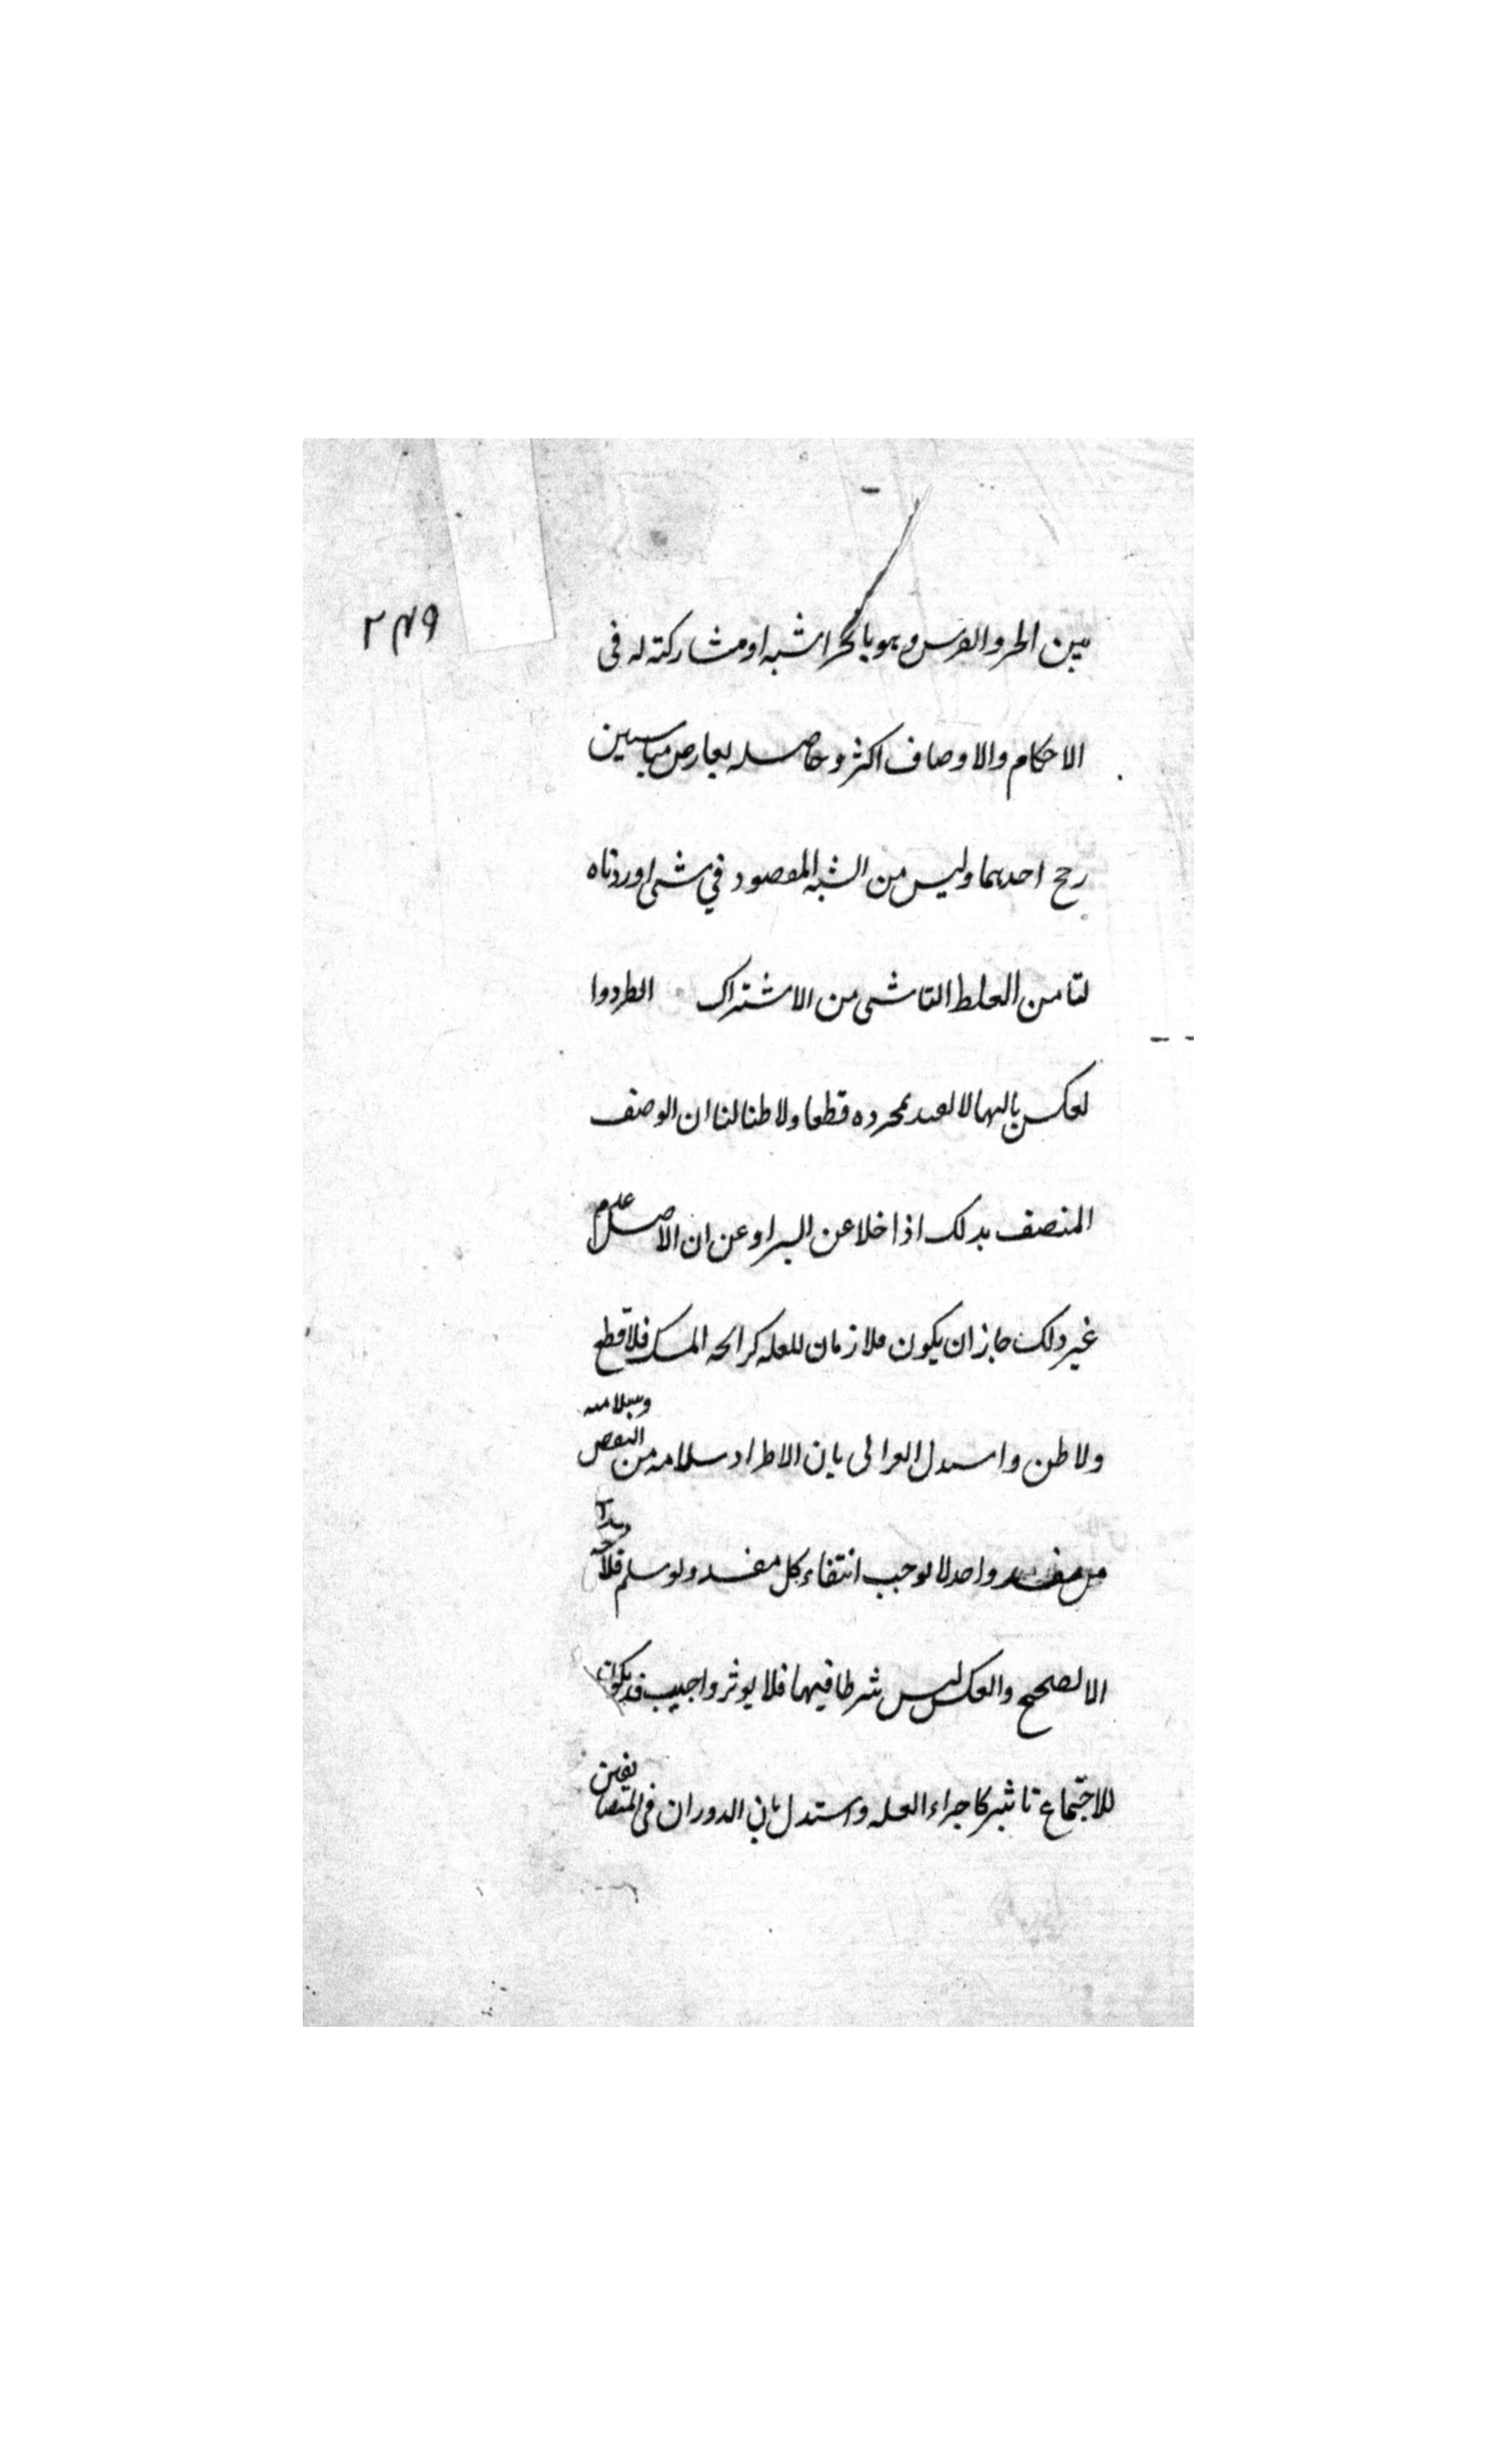 ۲۴۹
بين الحر والفرس وهو بالحر اشبه او مشاركته له فى
الاحكام والاوصاف اكثر وحاصله تعارض مناسبين
رجح احدهما وليس من الشبه المقصود في شى اوردناه
لتامن الغلط الناشى من الاشتراك الطرد وا
لعكس ثالثها لا لفيد بمجرده قطعا ولا ظنا لنا ان الوصف
المتصف بذلك اذا خلا عن السبر او عن ان الاصل عدم
غير ذلك جاز ان يكون ملازمان للعله كرائحه المسكر فلا قطع
ولا ظن واستدل الغزالى بان الاطراد سلامه من النقض وسلامته
من مفسد واحد لا يوجب انتفاء كل مفسد ولو سلم فلا
الا لصحح والعكس ليس شرطا فيها فلا يوثر واجيب قد يكون
للاجتماع تاثير كاجزاء العله واستدل بان الدوران فى المتضايفين